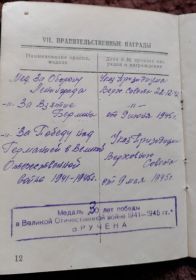 VII. ПРАВИТЕЛЬСТВЕННЫЕ НАГРАДЫ
Наименование ордена, медали
Дата и № приказа
Мед. За Оборону Ленинграда
Указ Президиума Верх. Совета 22.12.42
-"- За Взятие Берлина
-"- от 9 июня 1945г.
-"- За Победу над Германией в Великой Отечественной войне 1941-1945г.
Указ Президиума Верховного Совета
от 9 мая 1945г.
Медаль 30 лет победы
в Великой Отечественной войне 1941—1945 гг."
ВРУЧЕНА
12